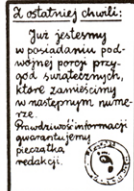 Z ostatniej chwili:
Już jesteśmy
w posiadaniu pod-
wójnej porcji przy-
gód świątecznych,
które zamieścimy
w następnym nume-
rze.
Prawdziwość informacji
gwarantujemy
pieczątką
redakcji.